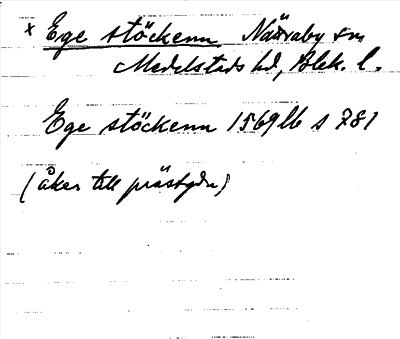 x Ege stöckenn Nättraby sn
Medelstads hd, Blek. l.
Ege stöckenn 1569 lb s 281
(åker till prästgdn)